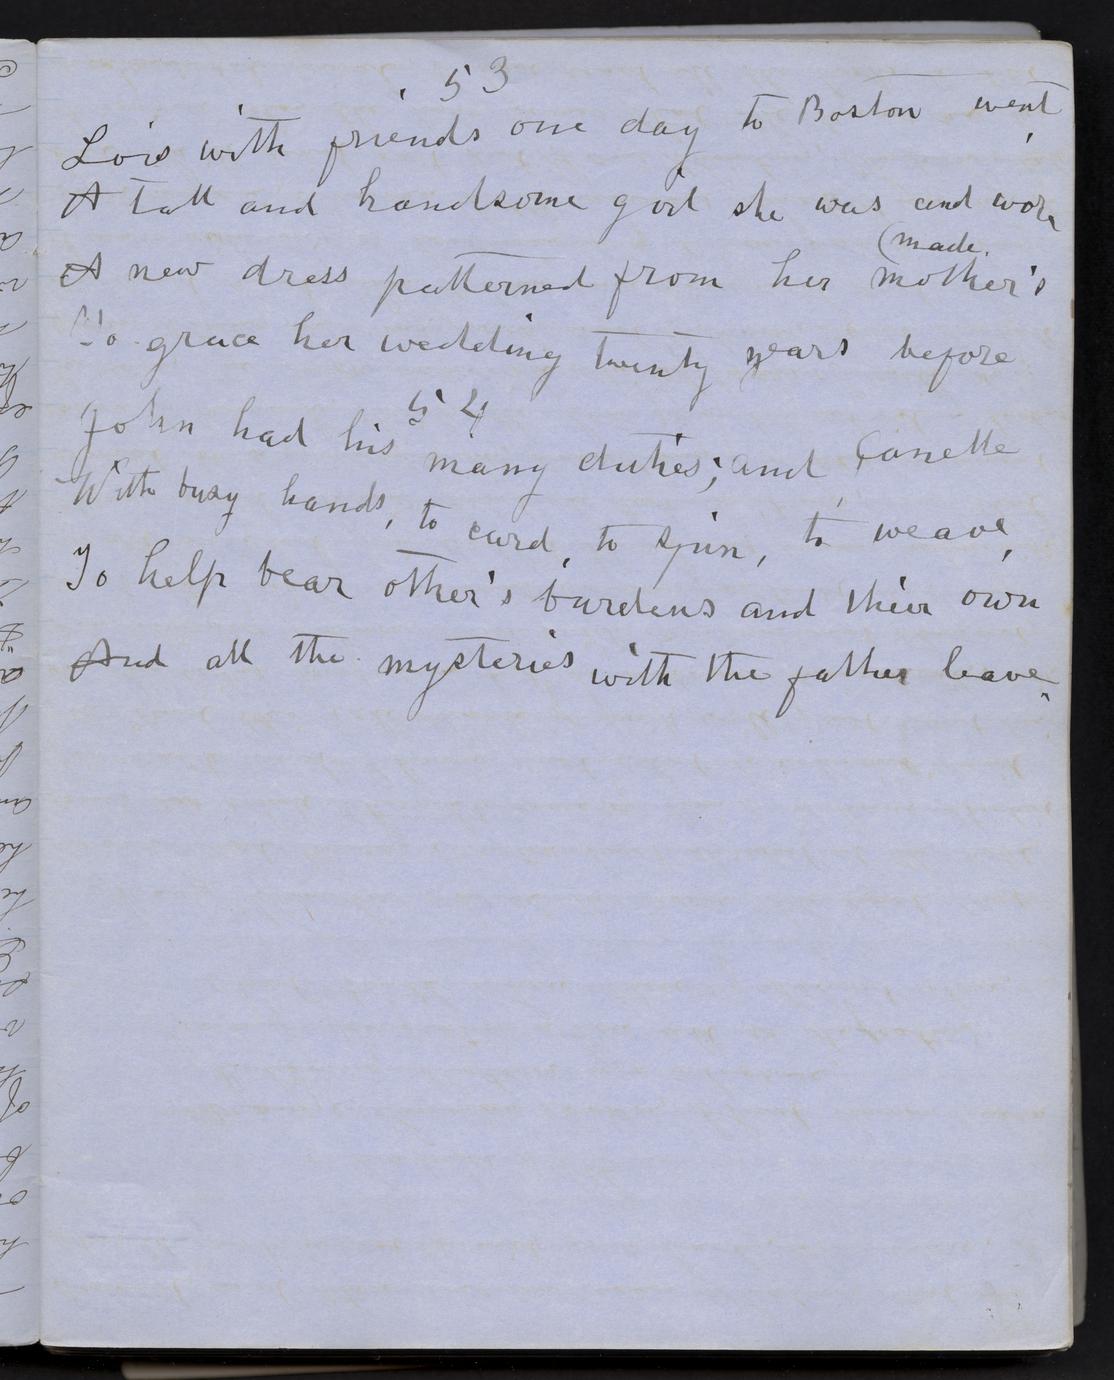 53
Lois with friends one day to Boston went,
A tall and handsome girl she was and wore
(made.
A new dress patterned from her mother's
To grace her wedding twenty years before
54
John had his many duties; and Janette
With busy hands, to card, to spin, to weave,
To help bear other's burdens and their own
And all the mysteries with the father leave.